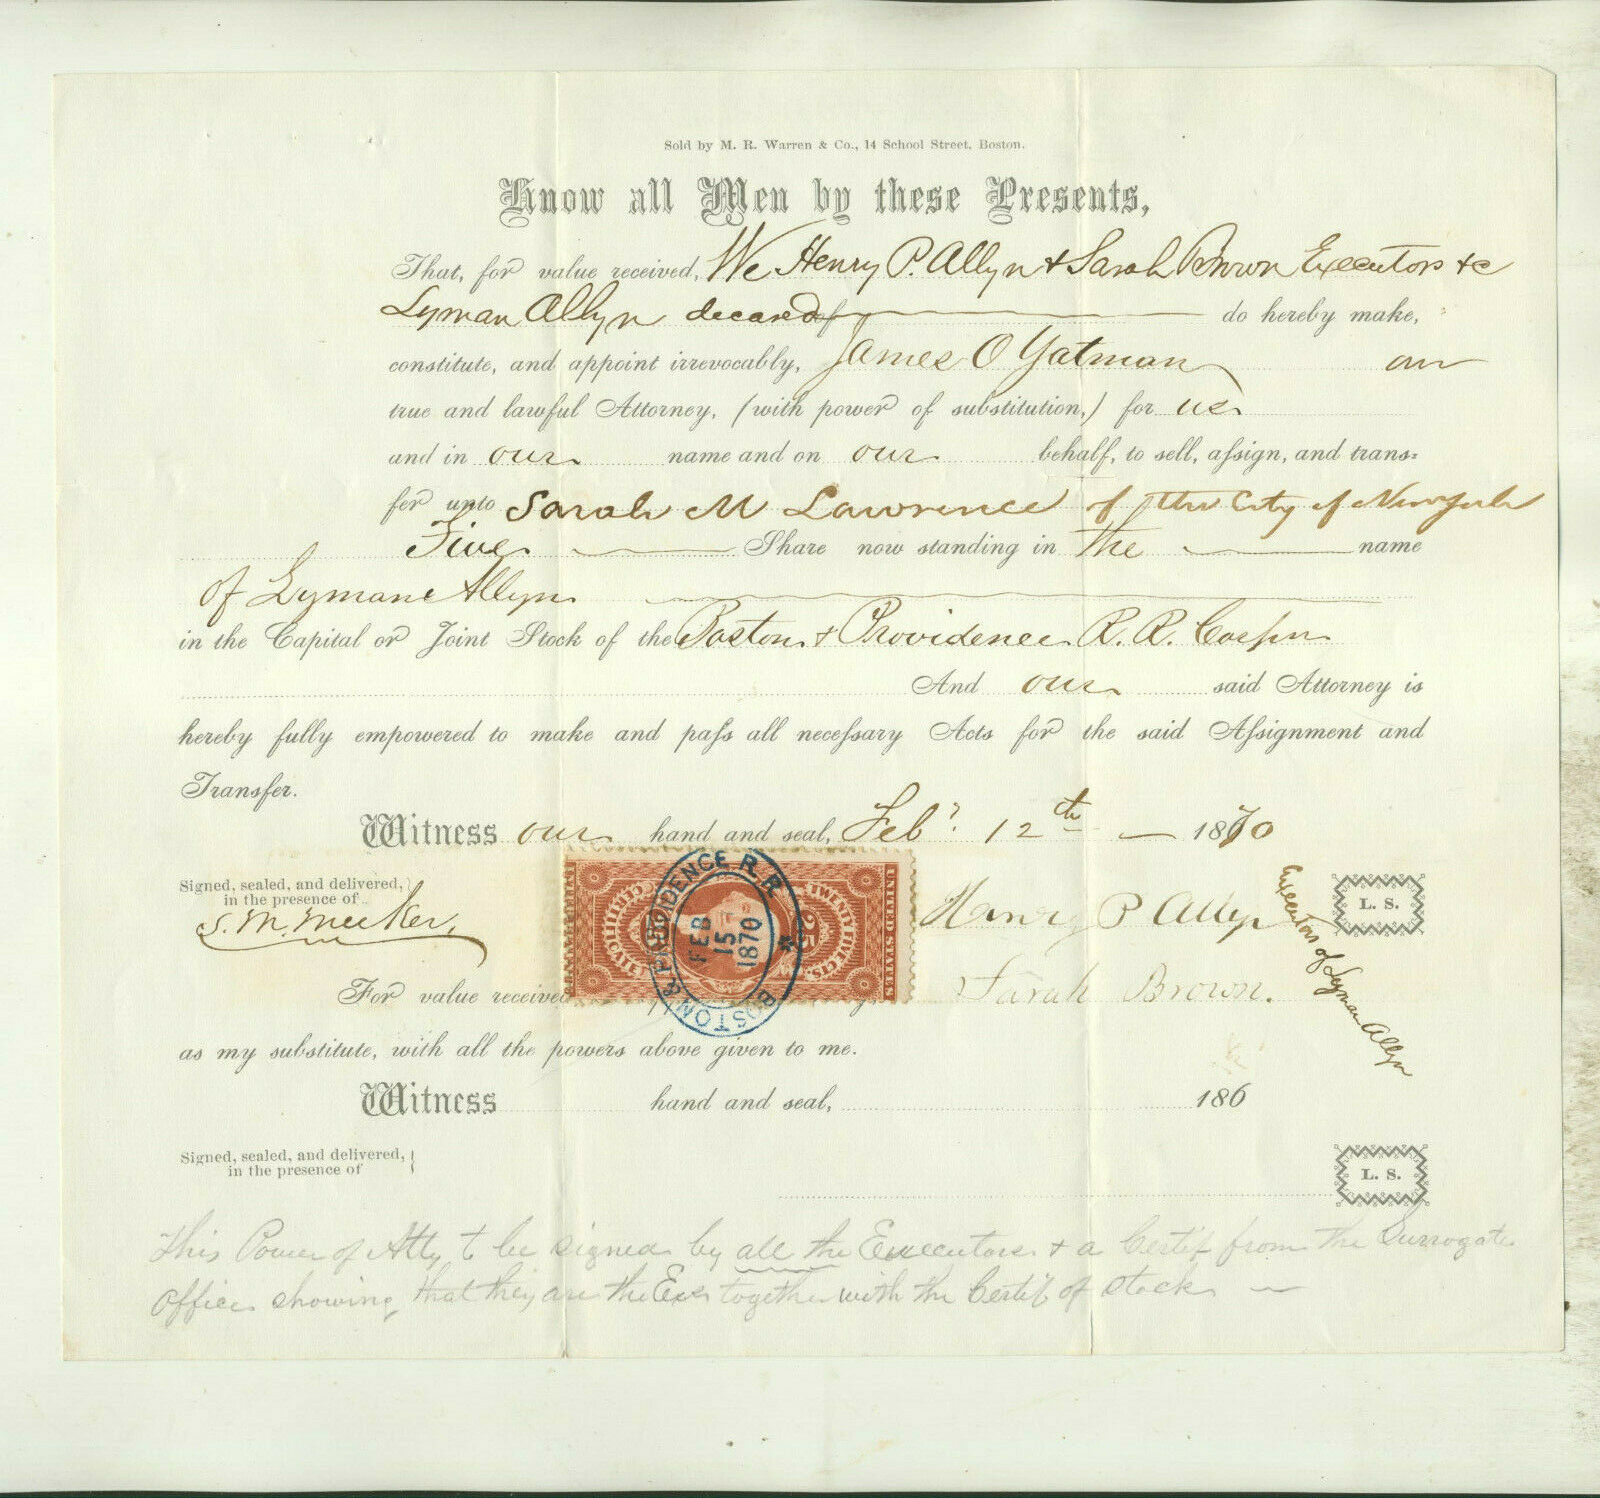 Sold by M. R. Warren & Co., 14 School Street, Boston.
Know all Men by these Presents,
That, for value received, We Henry P. Allyn & Sarah Brown Executors &c
Lyman Allyn deceased do hereby make,
constitute, and appoint irrevocably, James O Yatman our
true and lawful Attorney, (with power of substitution,) for us
and in our name and on our behalf, to sell, assign, and trans-
fer unto Sarah M Lawrence of the City of New York
Five Share now standing in the name
of Lyman Allyn
in the Capital or Joint Stock of the Boston & Providence R. R. Corpn
And our said Attorney is
hereby fully empowered to make and pass all necessary Acts for the said Assignment and
Transfer.
Witness our hand and seal, Feby. 12th 1870
Signed, sealed, and delivered,
in the presence of
S. M. Meeker
Henry P Allyn
Sarah Brown.
Executors of Lyman Allyn
L. S.
UNITED STATES
TWENTY FIVE CTS.
25
BOSTON & PROVIDENCE R. R.
FEB
15
1870
For value received
as my substitute, with all the powers above given to me.
Witness hand and seal, 186
Signed, sealed, and delivered,
in the presence of
L. S.
This Power of Atty to be signed by all the Executors & a Certif from the Surrogates
Office showing that they are the Exs together with the Certif of Stock